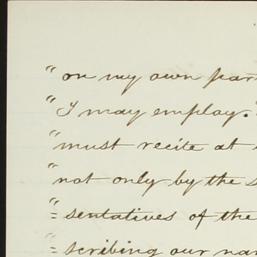 "on my own par
"I may employ."
"must recite at
"not only by the
"=sentatives of the
"=scribing our na